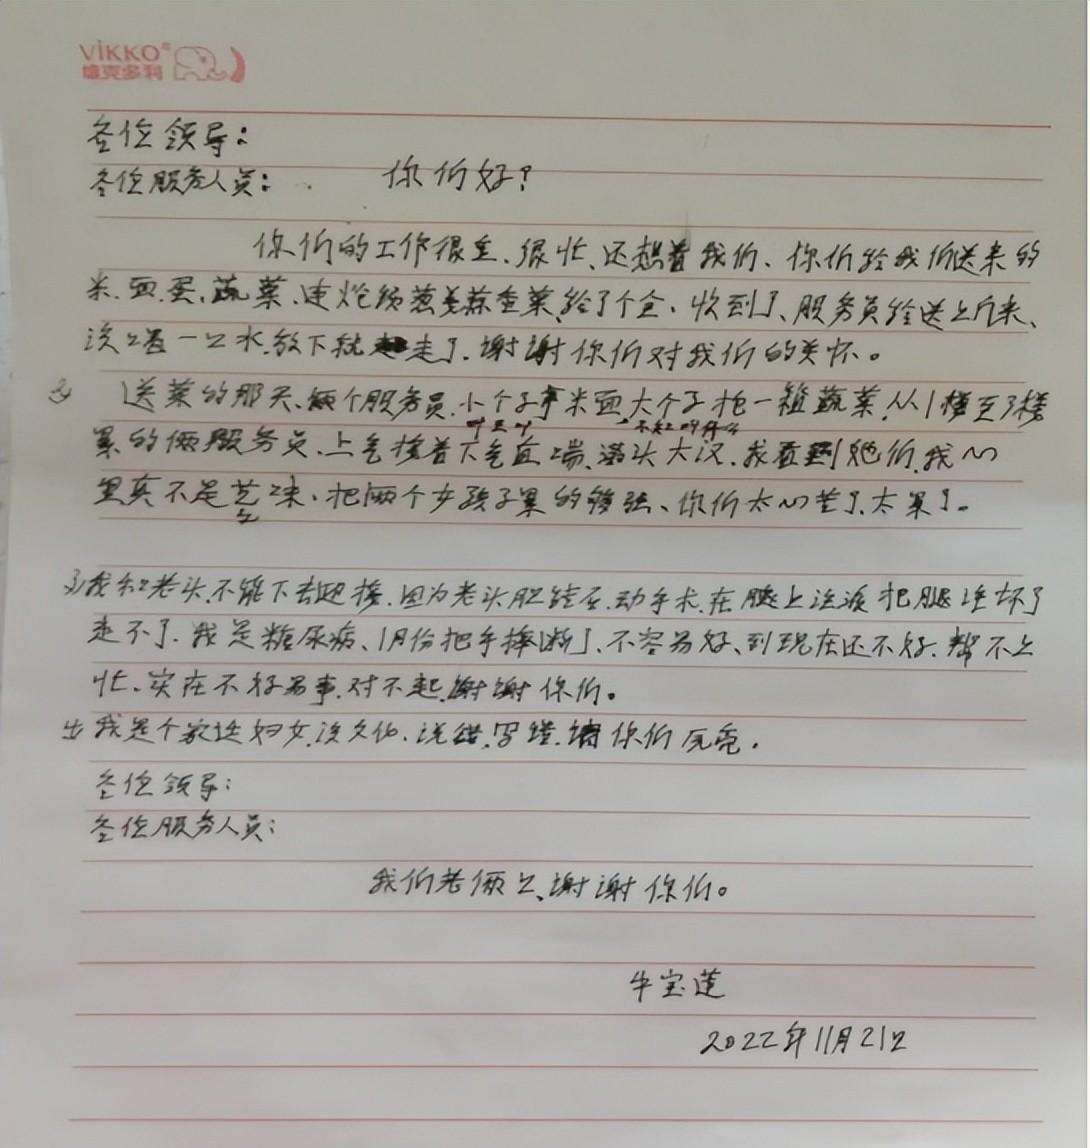 VIKKO®
维克多利
各位领导:
各位服务人员: 你们好?
你们的工作很主、很忙、还想着我们、你们给我们送来的
米.面.蛋、蔬菜、连炝锅葱姜蒜香菜、给了个全、收到了、服务员给送上门来、
没喝一口水.放下就走了.谢谢你们对我们的关怀。
2) 送菜的那天、俩个服务员.小个子拿米面、大个子抱一箱蔬菜.从1楼至3楼
叫旦叶 不知叫什么
累的俩服务员.上气接着下气直喘、满头大汉.我看到她们.我心
里真不是兹味、把俩个女孩子累的够呛、你们太心苦了.太累了。
3)我和老头.不能下去迎接.因为老头胆结石.动手术.在腿上注液把腿注坏了
走不了.我是糖尿病、1月份把手摔断了、不容易好、到现在还不好.帮不上
忙、实在不好易事.对不起.谢谢你们。
4 我是个家连妇女.没文化、说错.写错.请你们元亮.
各位领导:
各位服务人员:
我们老俩口、谢谢你们。
牛宝莲
2022年11月21日